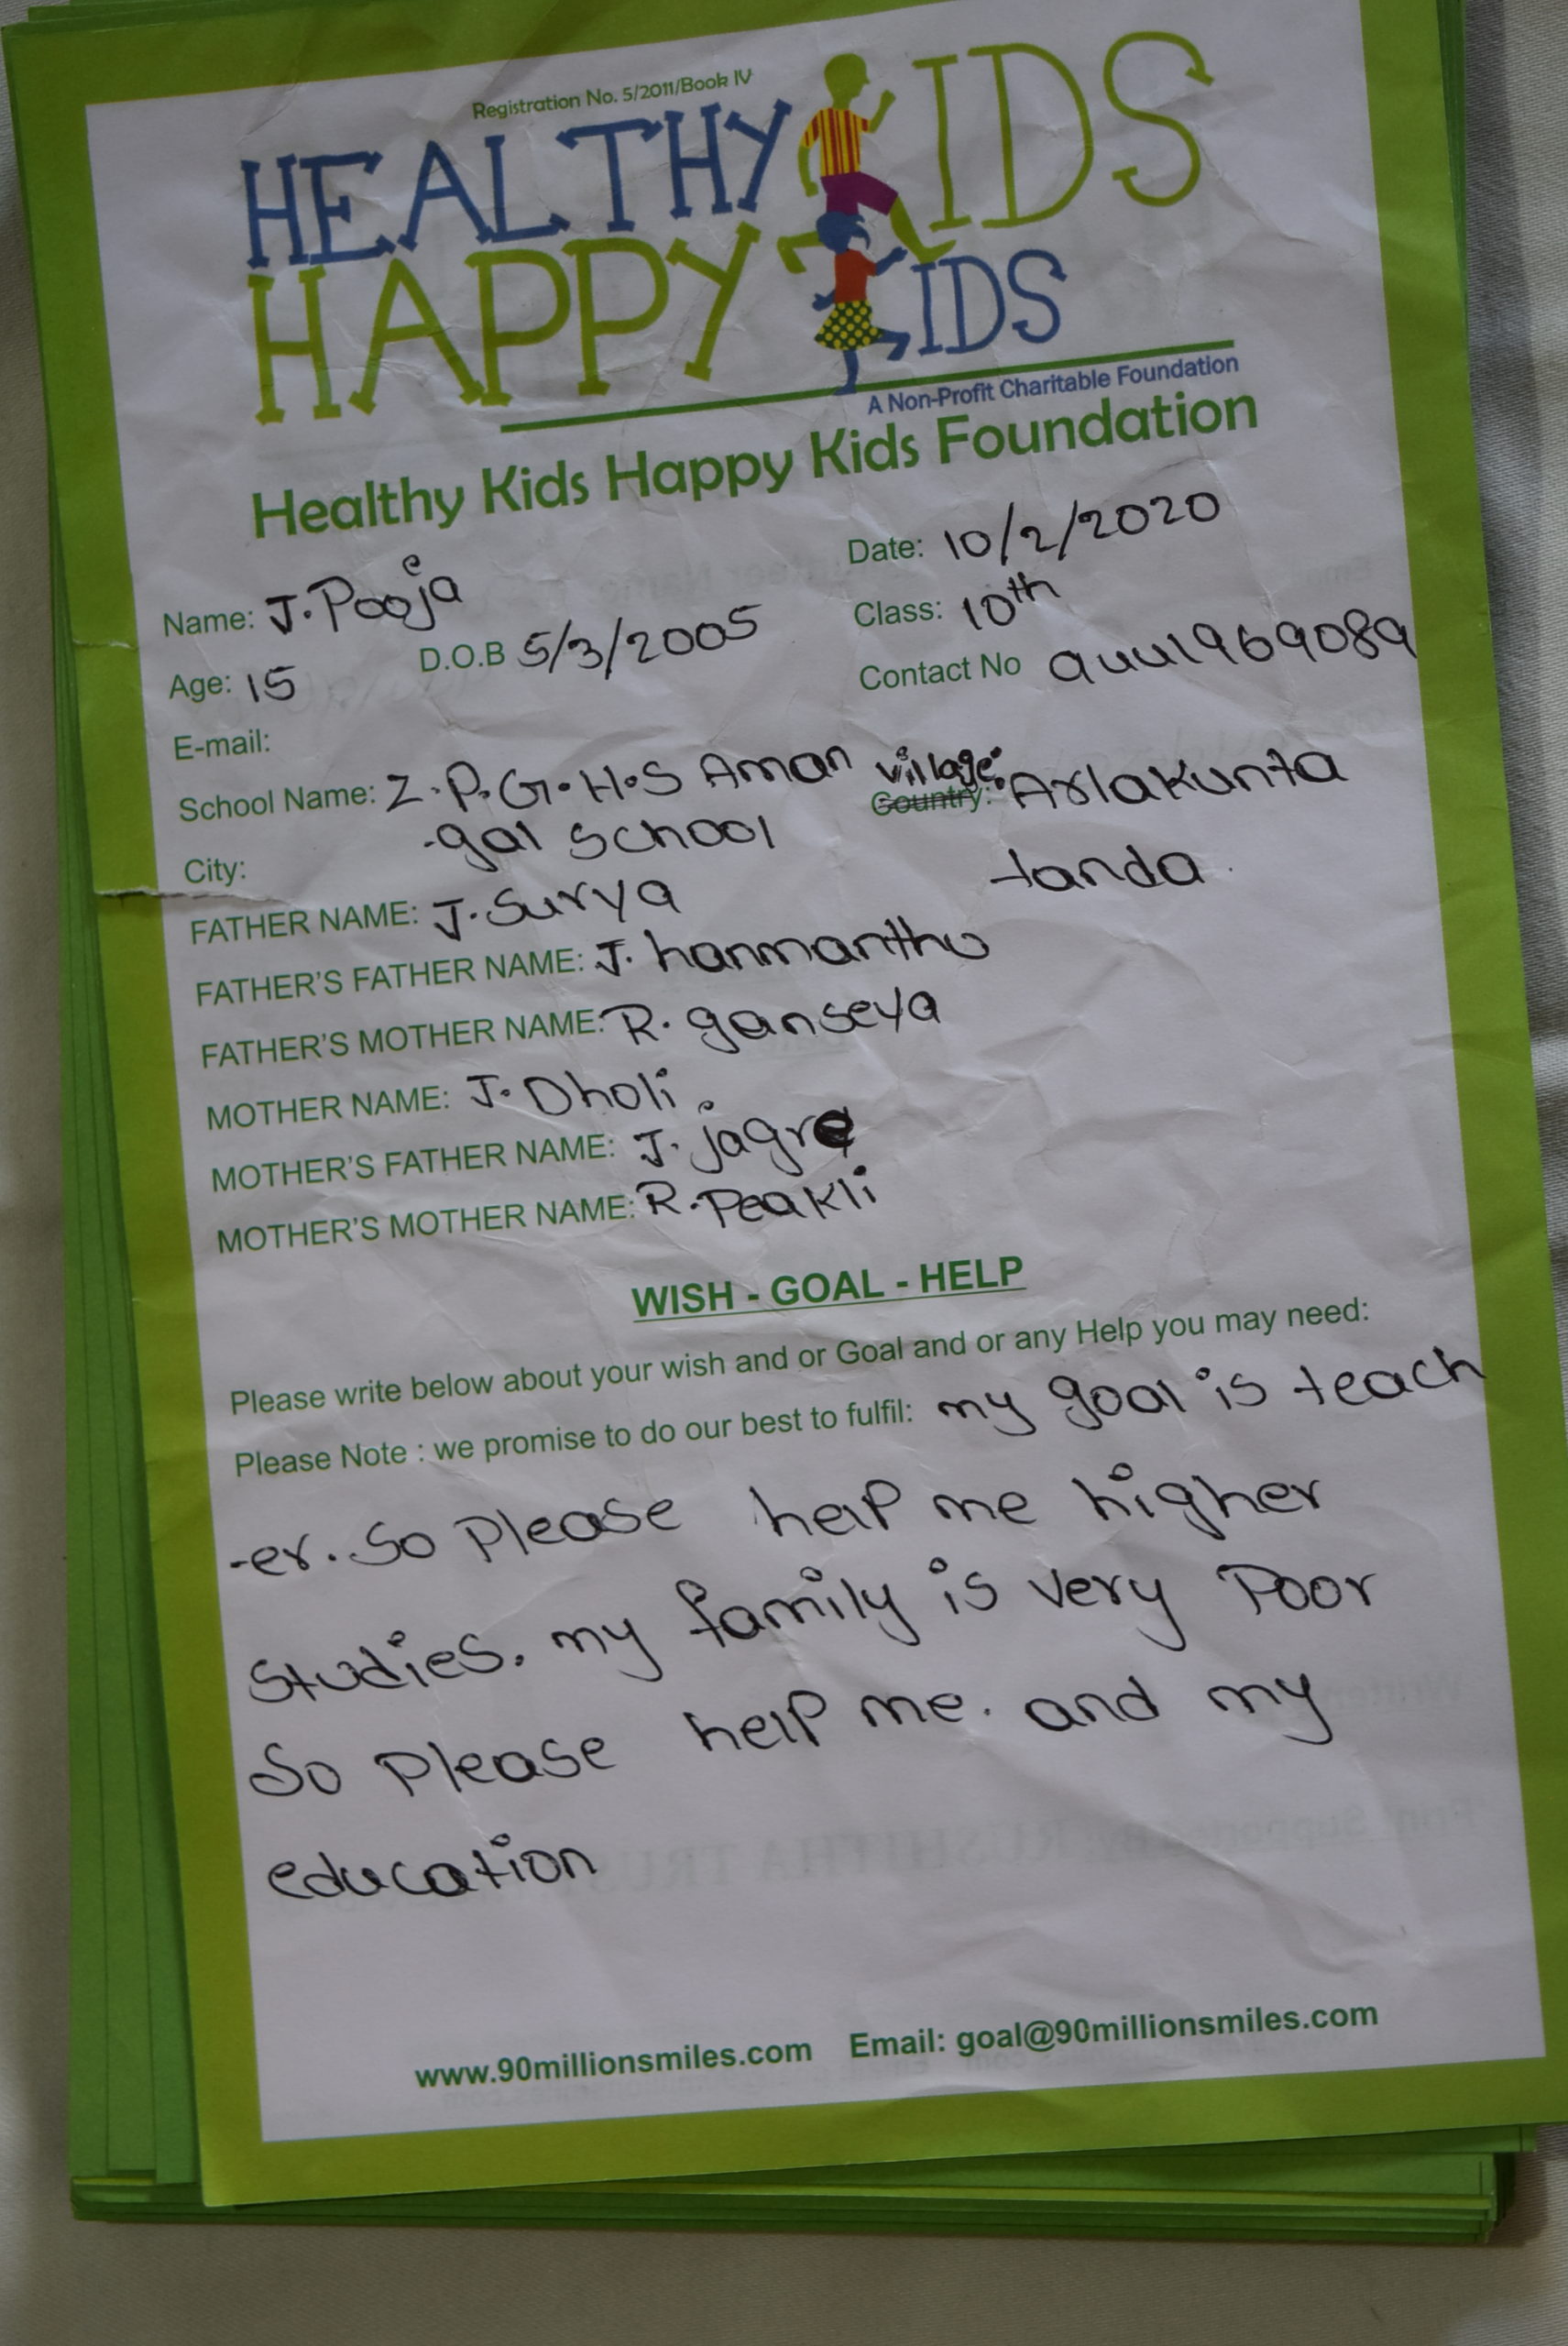 Registration No. 5/2011/Book IV
HEALTHY KIDS
HAPPY KIDS
A Non-Profit Charitable Foundation
Healthy Kids Happy Kids Foundation
Date: 10/2/2020
Name: J. Pooja
Class: 10th
Age: 15 D.O.B 5/3/2005
Contact No 9441969089
E-mail:
School Name: Z.P.G.H.S Aman village: Country: Arlakunta
-gal school
City: tanda
FATHER NAME: J. Surya
FATHER'S FATHER NAME: J. hanmanthu
FATHER'S MOTHER NAME: R. ganseya
MOTHER NAME: J. Dholi
MOTHER'S FATHER NAME: J.
MOTHER'S MOTHER NAME: R. Peakli
WISH - GOAL - HELP
Please write below about your wish and or Goal and or any Help you may need:
Please Note : we promise to do our best to fulfil: my goal is teach
-er. So Please help me higher
studies. my family is very Poor
So Please help me. and my
education
www.90millionsmiles.com Email: goal@90millionsmiles.com